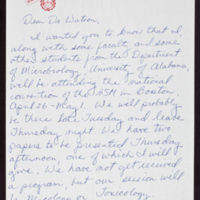 Dear Dr. Watson,
I wanted you to know that I,
along with some faculty and some
other students from the Department
of Microbiology, University of Alabama,
will be attending the national
convention of the ASM in Boston,
April 26 - May 1. We will probably
be there late Tuesday and leave
Thursday night. We have two
papers to be presented Thursday
afternoon, one of which I will
give. We have not yet received
a program, but our session will
be Mycology or Toxicology